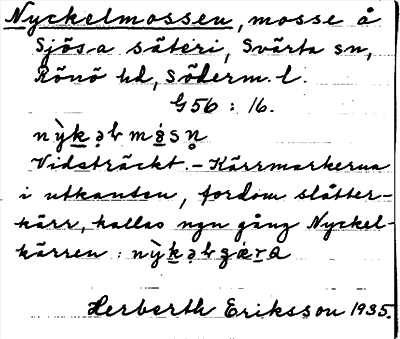 Nyckelmossen, mosse å
Sjösa säteri, Svärta sn,
Rönö hd, Söderm. l.
G56 : 16.
Vidsträckt. – Kärrmarkerna
i utkanten, fordom slåtter-
kärr, kallas ngn gång Nyckel-
kärren :
Herberth Eriksson 1935.